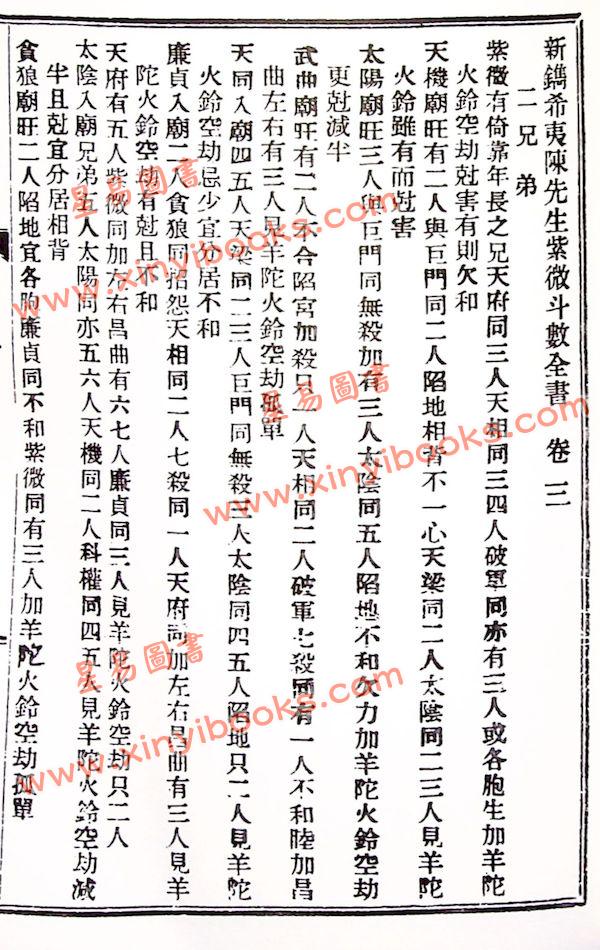 新鐫希夷陳先生紫微斗數全書 卷三
二兄弟
紫微有倚靠年長之兄天府同三人天相同三四人破軍同亦有三人或各胞生加羊陀
火鈴空劫尅害有則欠和
天機廟旺有二人與巨門同二人陷地相背不一心天梁同二人太陰同二三人見羊陀
火鈴雖有而尅害
太陽廟旺三人與巨門同無殺加有三人太陰同五人陷地不和欠力加羊陀火鈴空劫
更尅減半
武曲廟旺有二人不合陷宮加殺只一人天相同二人破軍七殺同有一人不和睦加昌
曲左右有三人見羊陀火鈴空劫孤單
天同入廟四五人天梁同二三人巨門同無殺三人太陰同四五人陷地只二人見羊陀
火鈴空劫忌少宜分居不和
廉貞入廟二人貪狼同招怨天相同二人七殺同一人天府同加左右昌曲有三人見羊
陀火鈴空劫有尅且不和
天府有五人紫微同加左右昌曲有六七人廉貞同三人見羊陀火鈴空劫只二人
太陰入廟兄弟五人太陽同亦五六人天機同二人科權同四五人見羊陀火鈴空劫減
半且尅宜分居相背
貪狼廟旺二人陷地宜各胞廉貞同不和紫微同有三人加羊陀火鈴空劫孤單
星易圖書
www.xinyibooks.com
星易圖書
www.xinyibooks.com
星易圖書
www.xinyibooks.com